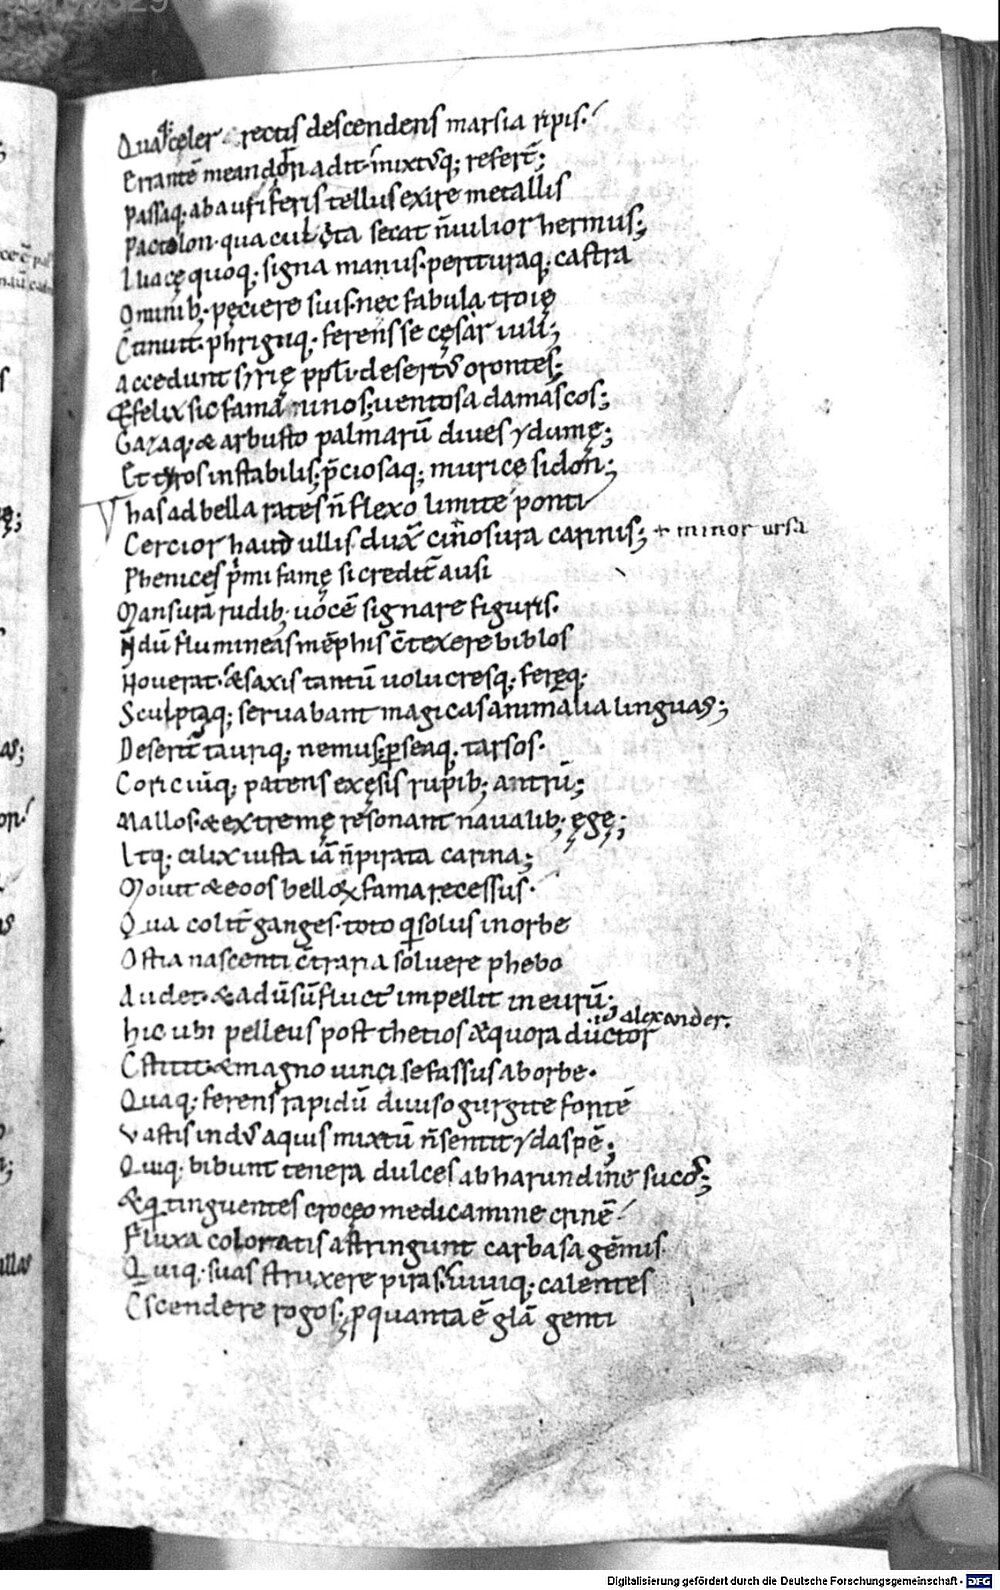 Qua celer rectis descendens marsia ripis.
Errantē meandron adit mixtusq; refert;
Passaq; ab auriferis tellus exire metallis
Pactolon. qua culta secat n̄ uilior hermus;
Iliacę quoq; signa manus. perituraq; castra
Ominib; pęciere suis. nec fabula troię
C̄tinuit. phrigiiq; ferens se cęsar iuli;
Accedunt syrię ppl̄i. desert᷒ orontes;
& felix sic fama ninos; uentosa damascos;
Gazaq; & arbusto palmarū diues ydumę;
Et tyros instabilis; p̄ciosaq; muricę sidon;
has ad bella rates n̄ flexo limite ponti
Cercior haud ullis dux̄ cinosura carinis; + minor ursa
Phenices p̄mi famę si credit̄ ausi
Mansurā rudib; uocē signare figuris.
N̄dū flumineas mēphis c̄texere biblos
Nouerat. & saxis tantū uolucresq; feręq;
Sculptaq; seruabant magicas animalia linguas;
Deserit̄ tauriq; nemus; pseaq; tarsos.
Coriciūq; patens exęsis rupib; antrū;
Mallos. & extremę resonant naualib; ęgę;
Itq; cilix iusta iā n̄ pirata carina;
Mouit & eoos bellox fama recessus.
Qua colit̄ ganges. toto qi solus in orbe
Ostia nascenti c̄traria soluere phebo
Audet. & aduSū fluct᷒ impellit in eurū;
.i. alexander.
hic ubi pelleus post thetios æquora ductor
C̄stitit. & magno uinci se fassus ab orbe.
Quaq; ferens rapidū diuiso gurgite fontē
Vastis ind᷒ aquis mixtū n̄ sentit ydaspē;
Quiq; bibunt tenera dulces ab harundine sucos;
&q tinguentes croceo medicamine crinē
Fluxa coloratis astringunt carbasa gēmis.
Quiq; suas struxere piras. uiuiq; calentes
C̄scendere rogos; p quanta ē glā genti
Digitalisierung gefördert durch die Deutsche Forschungsgemeinschaft - DFG